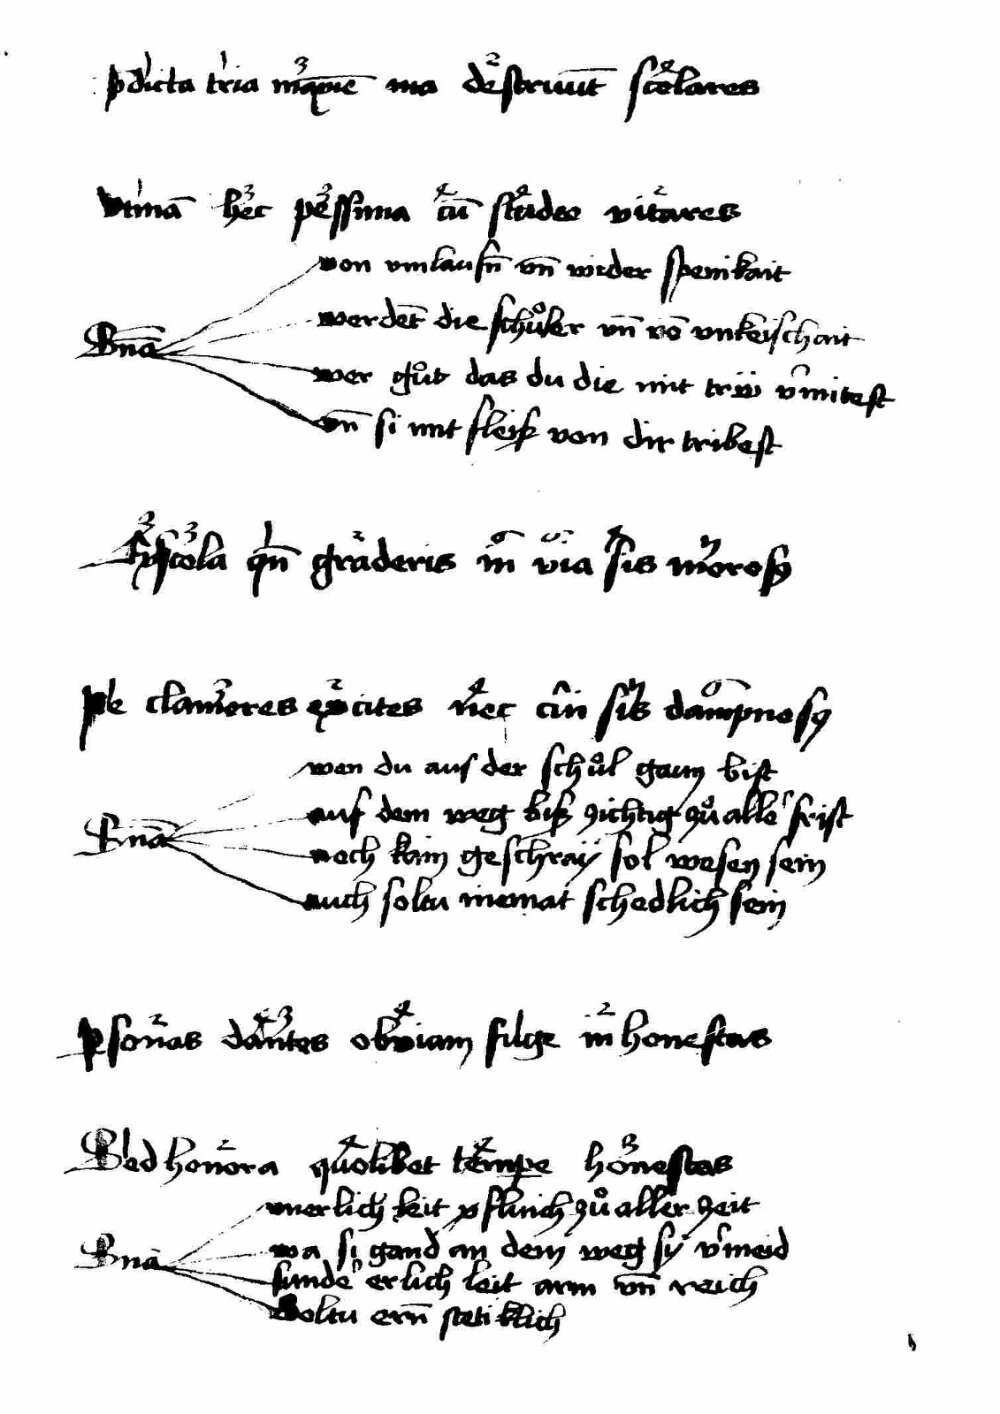 pdicta tria maxīe ma destruūt scolares
vtinā hec pessima cū studeo vitares
von vmlaufn̄ vn̄ wider spenikait
werdet̄ die schůler vn̄ võ vnkeischait
Snā
wer gůt das du die mit trÿ vmitest
vn̄ si mit fleiß von dir tribest
scola qn̄ graderis in via sis moros9
Ne clamores excites nec sis dampnos9
wen du aus der schůl gann bist
auf dem weg biß zichtig zů alle frist
Snā
noch kain geschraÿ sol wesen sein
auch soltu niemat schedlich sein
psonas dantes obviam fuge inhonestas
Sed honora quolibet tempe honestas
vnerlich keit pflinich zů aller zeit
Snā
wa si gand an dem weg sÿ vmeid
sunde erlich leit arm vn̄ reich
Soltu ern̄ stetiklich